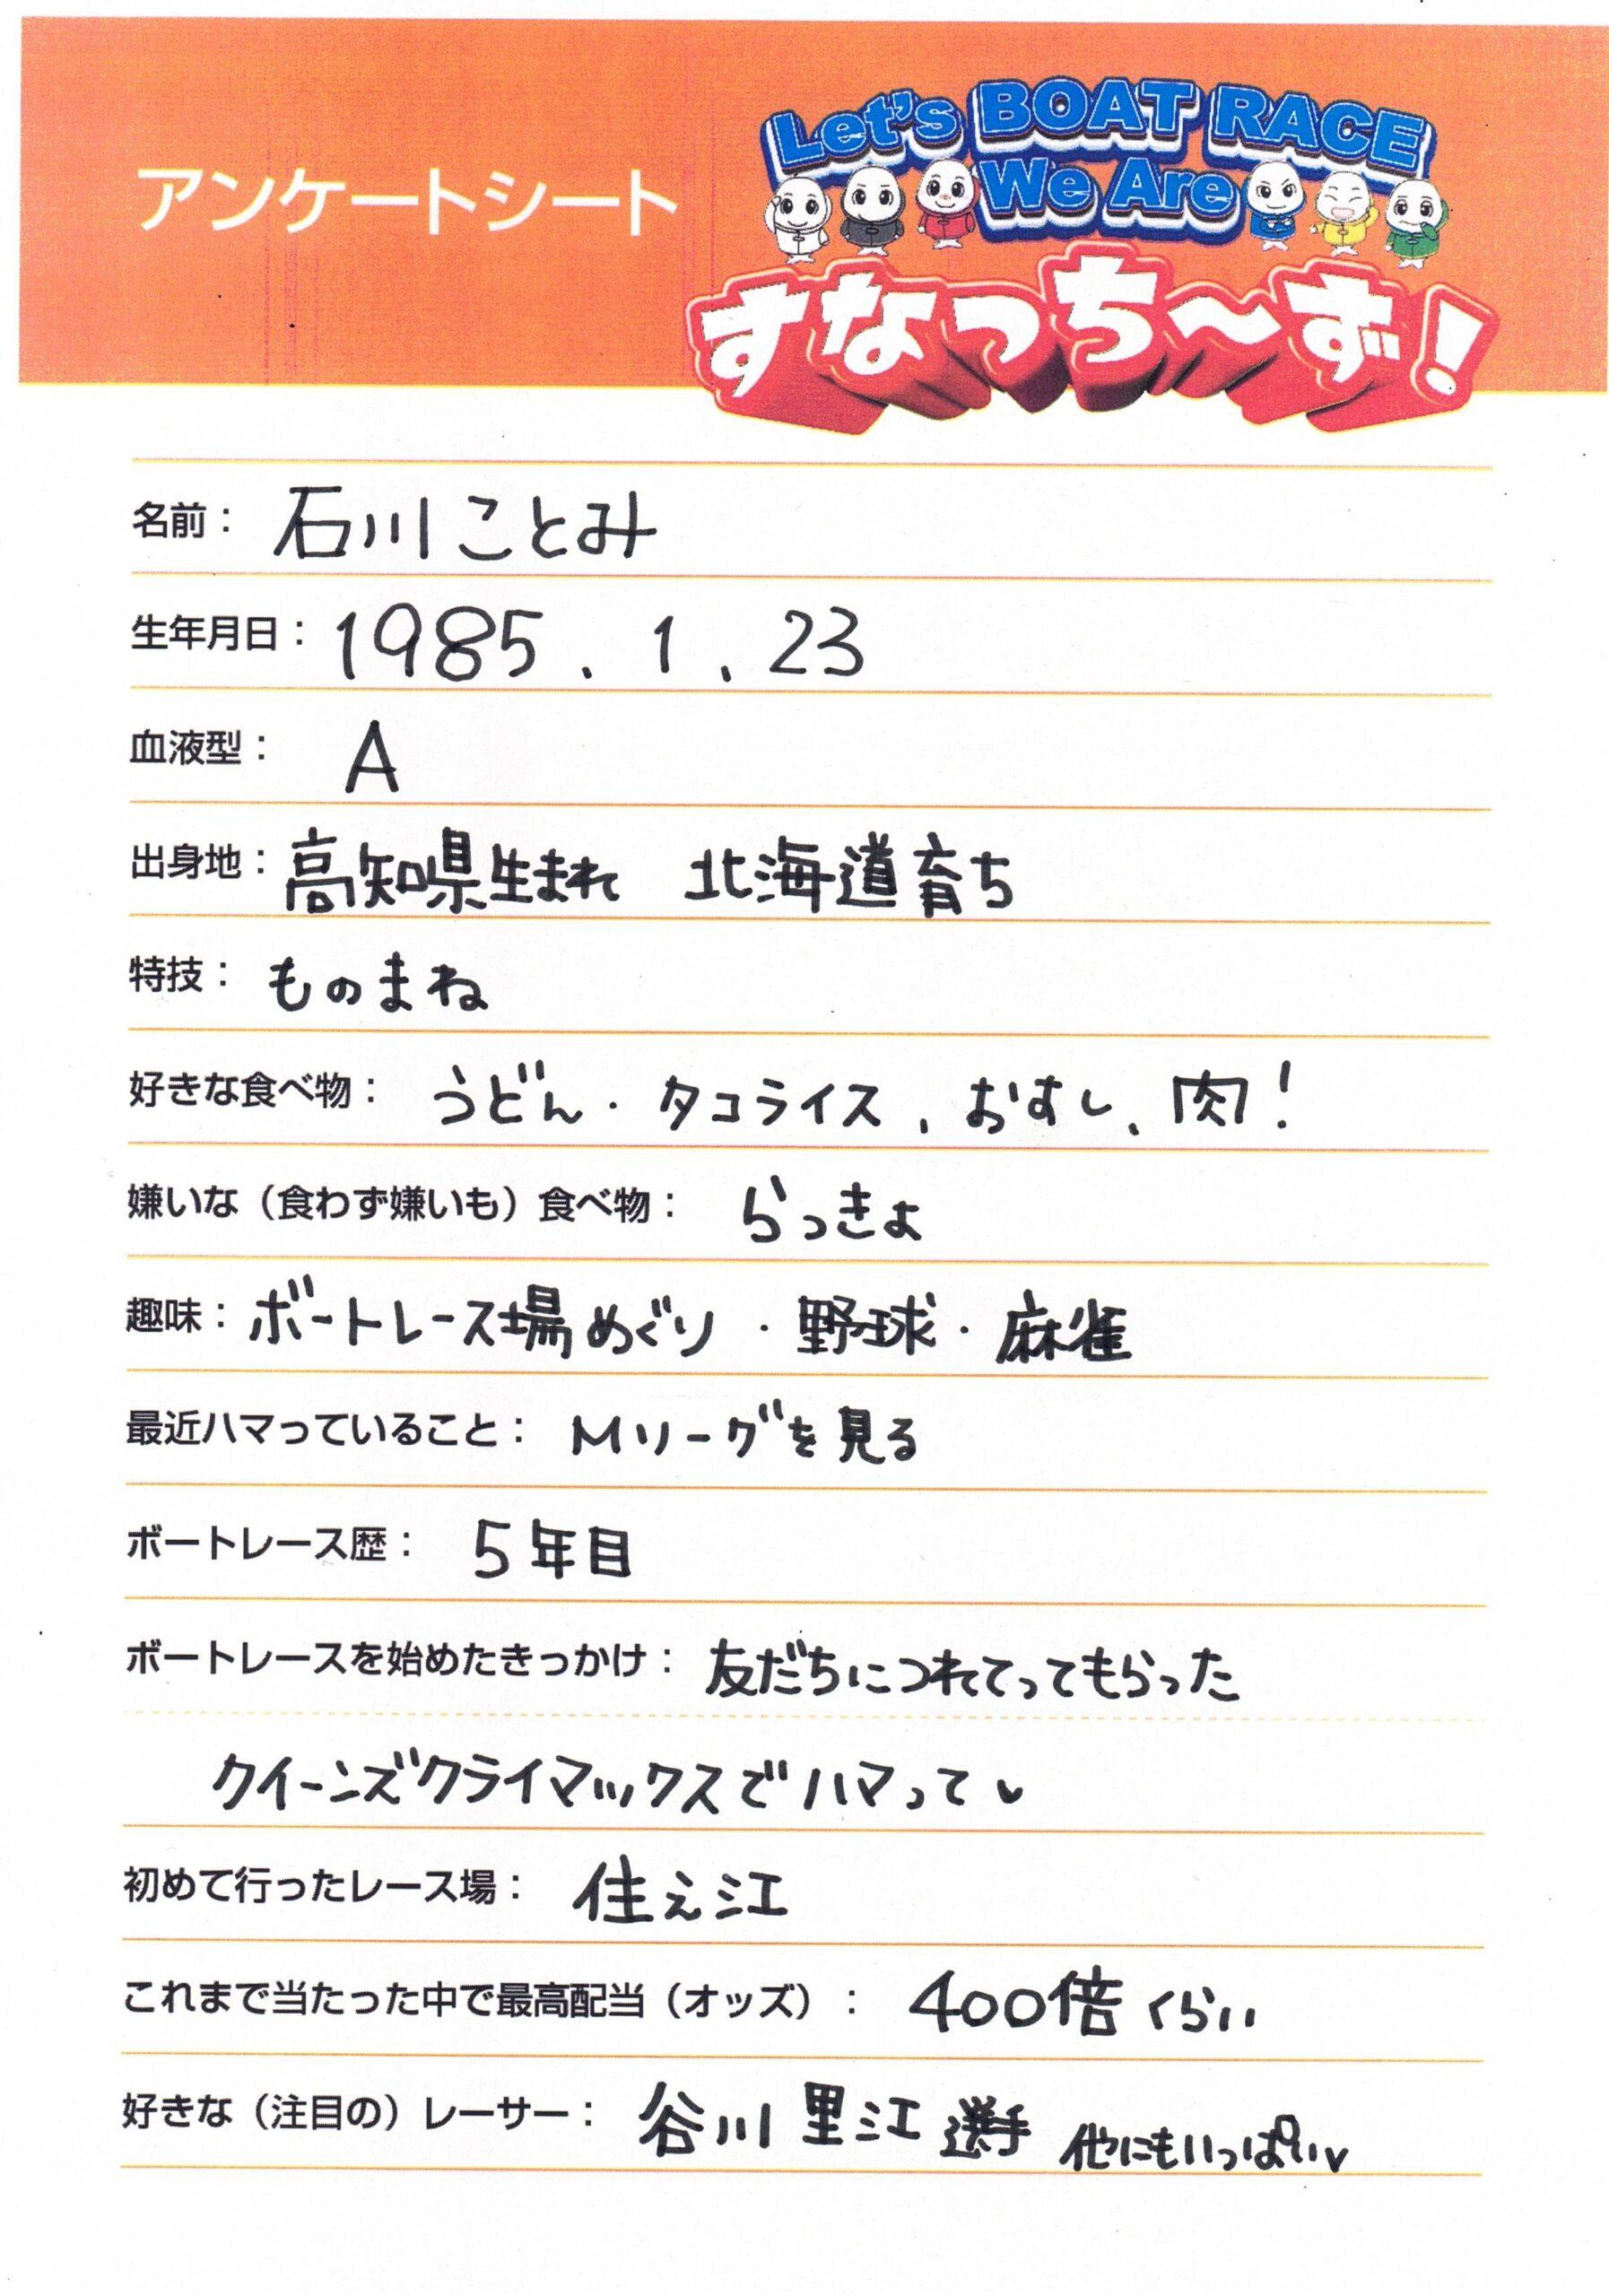 アンケートシート
Let's BOAT RACE
We Are
すなっち〜ず!
名前： 石川ことみ
生年月日： 1985. 1. 23
血液型： A
出身地： 高知県生まれ 北海道育ち
特技： ものまね
好きな食べ物： うどん・タコライス、おすし、肉!
嫌いな（食わず嫌いも）食べ物： らっきょ
趣味： ボートレース場めぐり・野球・麻雀
最近ハマっていること： Mリーグを見る
ボートレース歴： 5年目
ボートレースを始めたきっかけ： 友だちにつれてってもらった
クイーンズクライマックスでハマって
初めて行ったレース場： 住え江
これまで当たった中で最高配当（オッズ）： 400倍くらい
好きな（注目の）レーサー： 谷川里江選手 他にもいっぱい